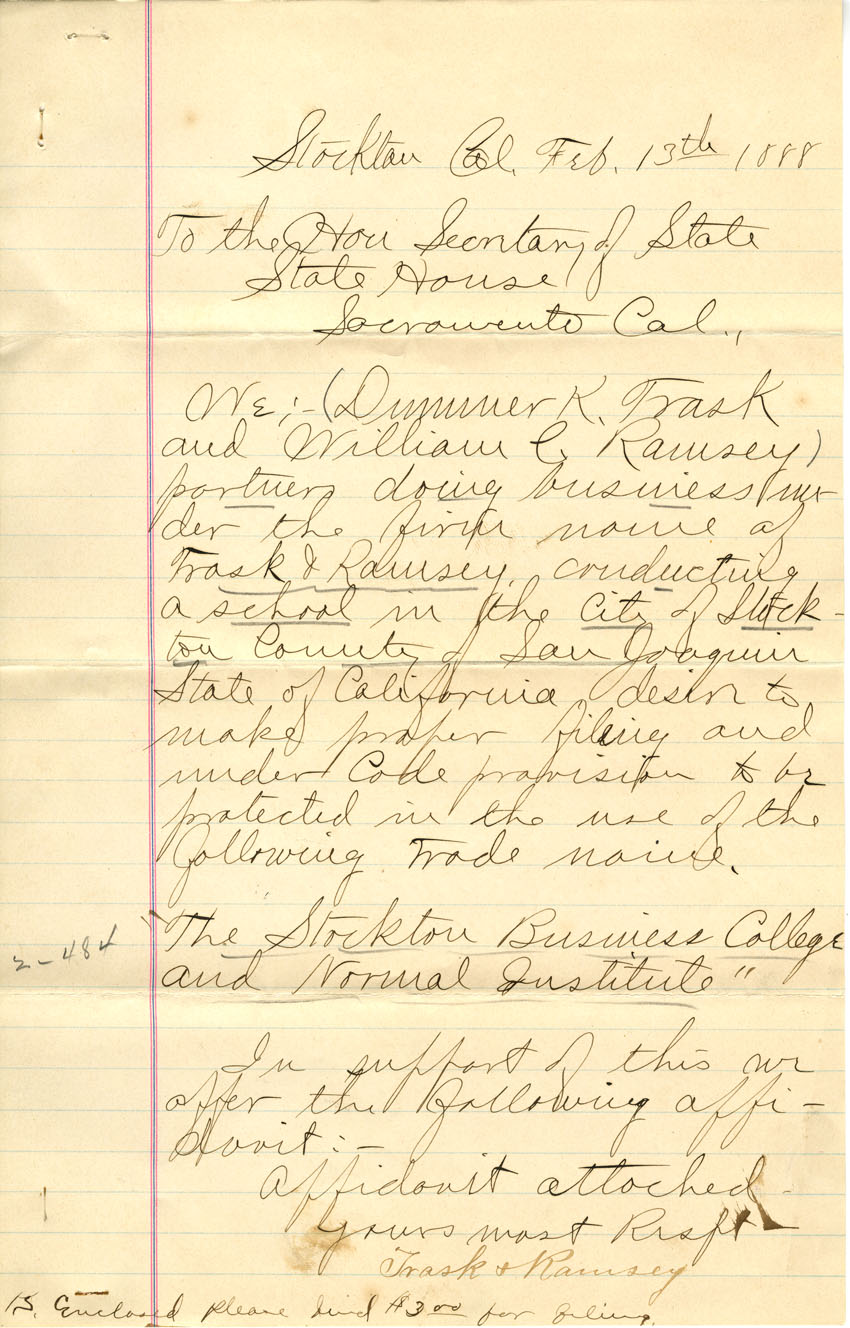 Stockton Cal. Feb. 13th 1888
To the Hon Secretary of State
State House
Sacramento Cal.,
We;-(Dummer K. Trask
and William C. Ramsey)
partners doing business un-
der the firm name of
Trask & Ramsey, conducting
a school in the City of Stock-
ton County of San Joaquin
State of California desire to
make proper filing and
under Code provision to be
protected in the use of the
following Trade name.
"The Stockton Business College
2-484
and Normal Institute"
In support of this we
offer the following affi-
davit:-
Affidavit attached-
Yours most Respt
Trask & Ramsey
P.S. Enclosed please find $3.00 for filing.